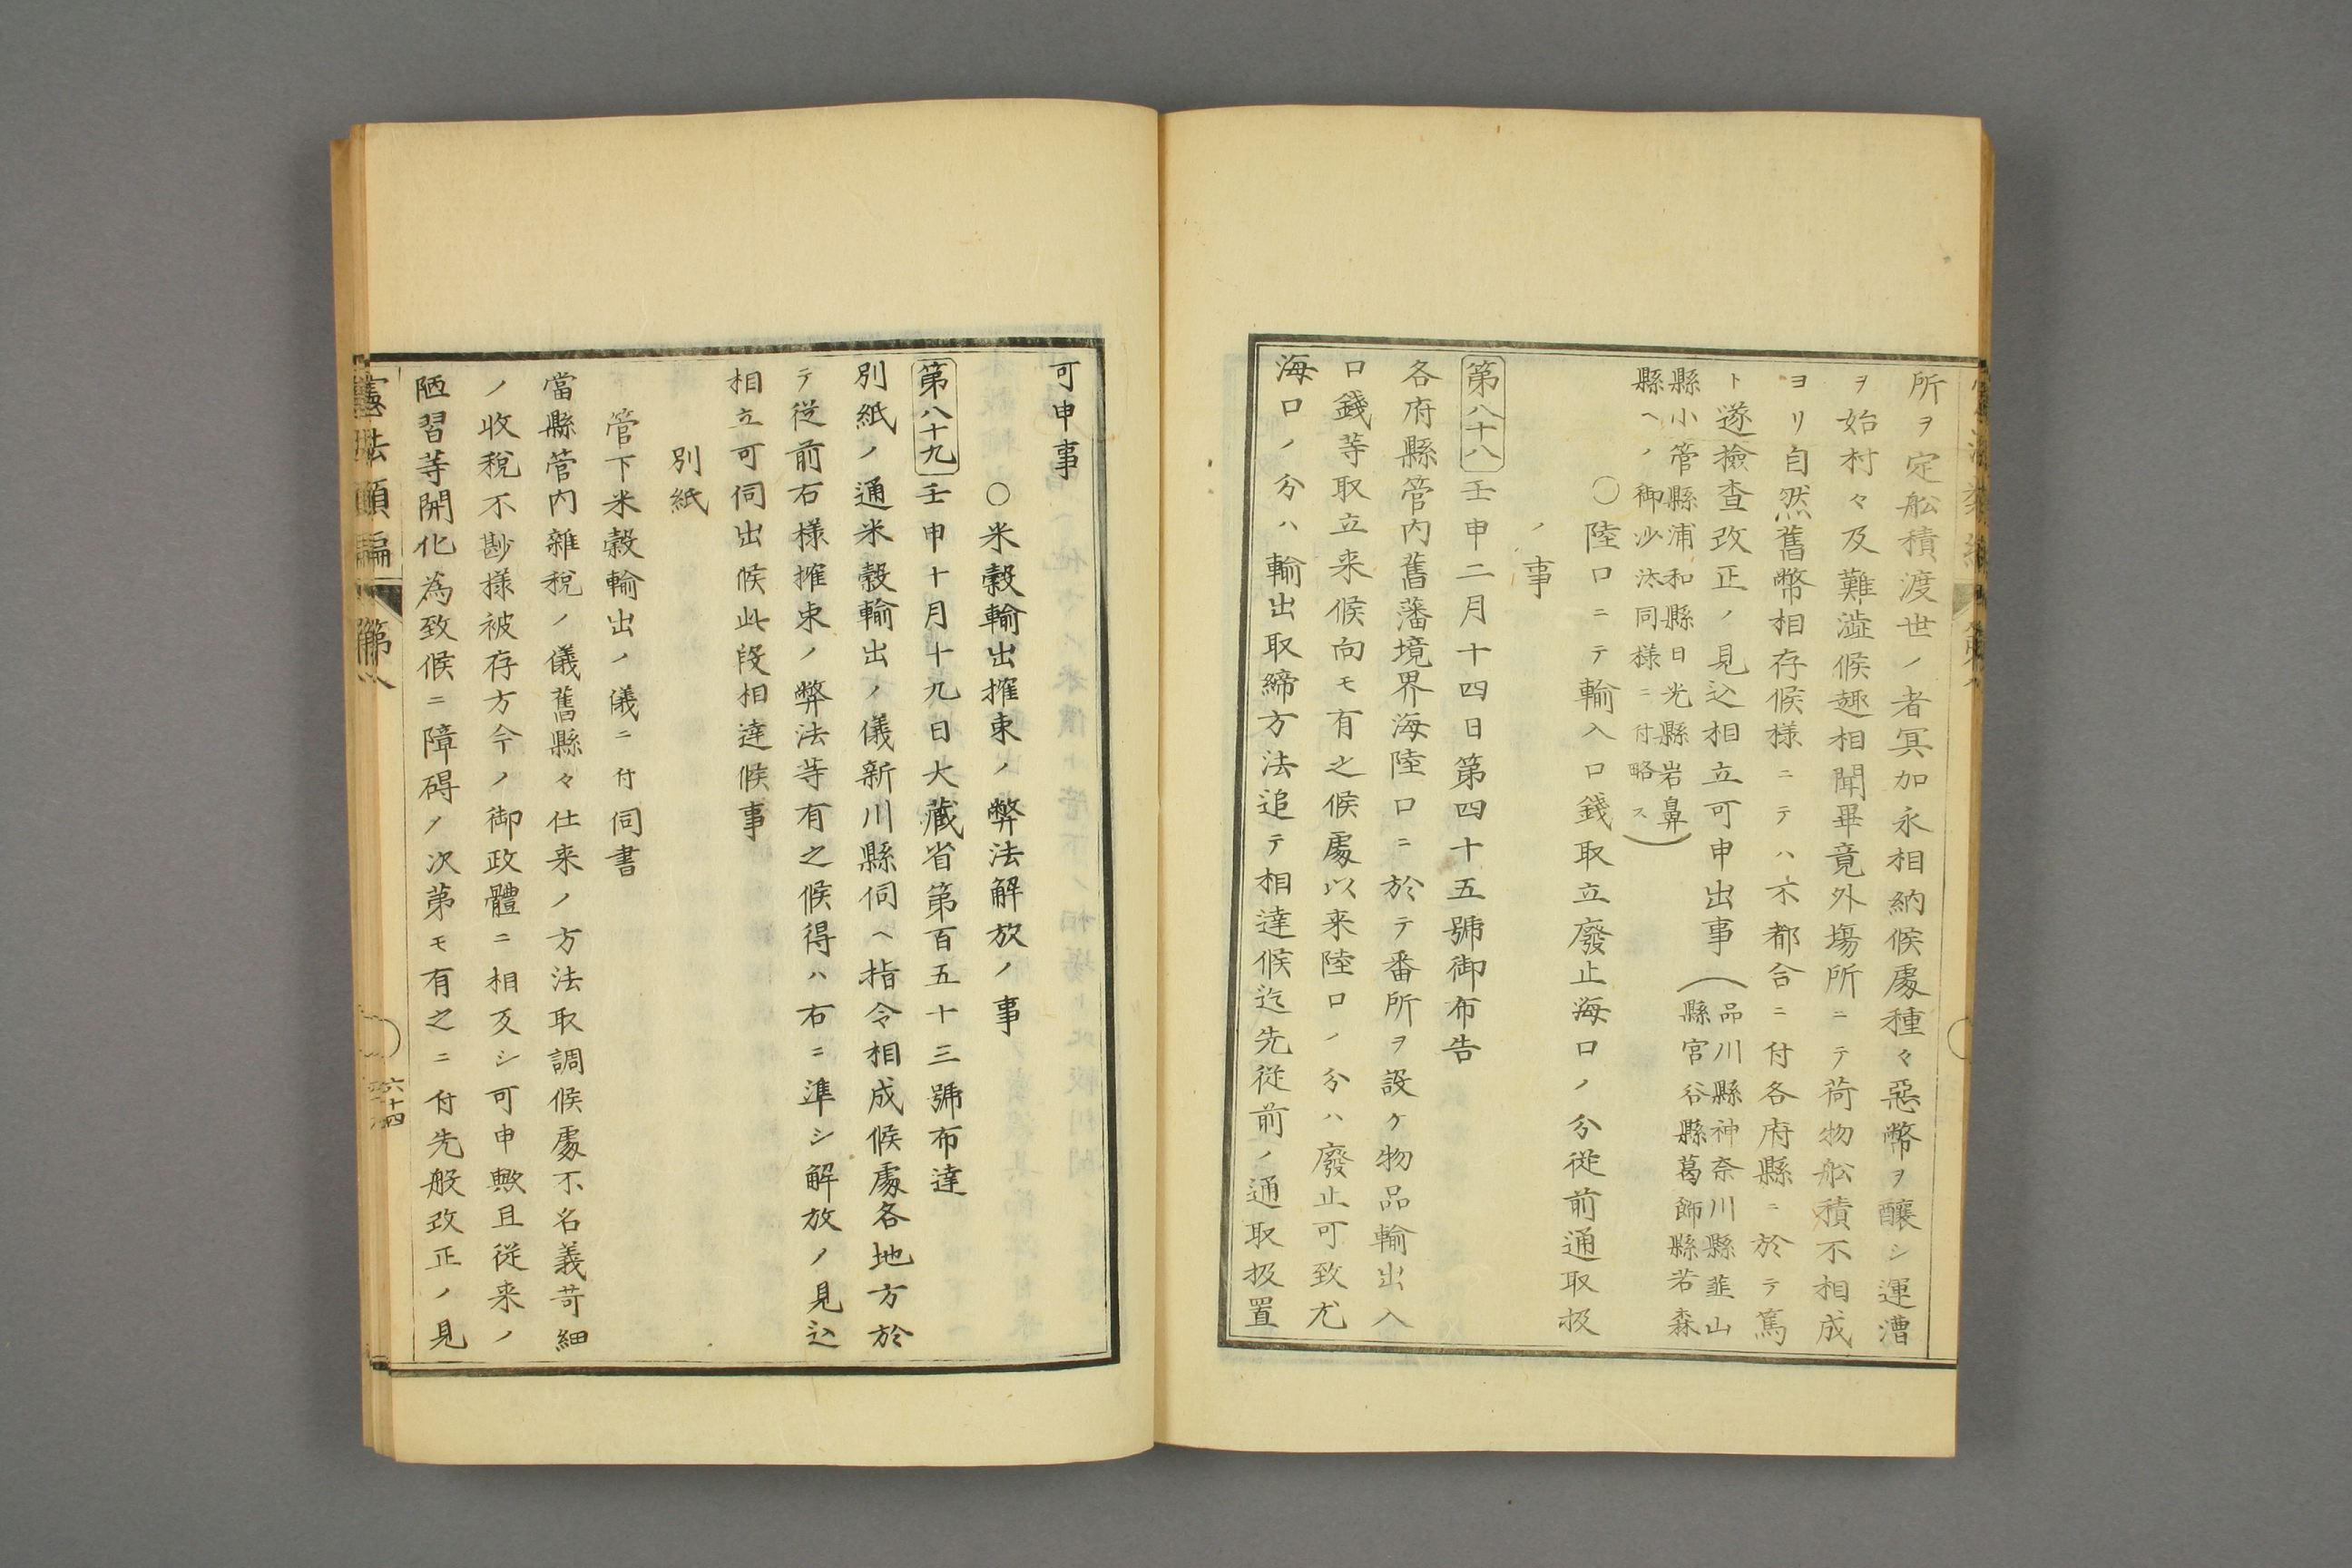 所ヲ定舩積渡世ノ者冥加永相納候處種々惡幣ヲ釀シ運漕
ヲ始村々及難澁候趣相聞畢竟外塲所ニテ荷物舩積不相成
ヨリ自然舊幣相存候様ニテハ不都合ニ付各府縣ニ於テ篤
ト遂撿査改正ノ見込相立可申出事(品川縣神奈川縣韮山
縣宮谷縣葛飾縣若森
縣小菅縣浦和縣日光縣岩鼻
縣ヘノ御沙汰同様ニ付略ス)
○陸口ニテ輸入口錢取立廢止海口ノ分従前通取扱
ノ事
第八十八 壬申二月十四日第四十五號御布告
各府縣管内舊藩境界海陸口ニ於テ番所ヲ設ケ物品輸出入
口錢等取立来候向モ有之候處以来陸口ノ分ハ廢止可致尤
海口ノ分ハ輸出取締方法追テ相達候迄先従前ノ通取扱置
可申事
○米穀輸出搉束ノ弊法解放ノ事
第八十九 壬申十月十九日大藏省第百五十三號布達
別紙ノ通米穀輸出ノ儀新川縣伺ヘ指令相成候處各地方於
テ従前右様搉束ノ弊法等有之候得ハ右ニ準シ解放ノ見込
相立可伺出候此段相達候事
別紙
管下米穀輸出ノ儀ニ付伺書
當縣管内雜税ノ儀舊縣々仕来ノ方法取調候處不名義苛細
ノ收税不尠様被存方今ノ御政體ニ相反シ可申歟且従来ノ
陋習等開化為致候ニ障碍ノ次第モ有之ニ付先般改正ノ見
憲法類編 第八
六十四